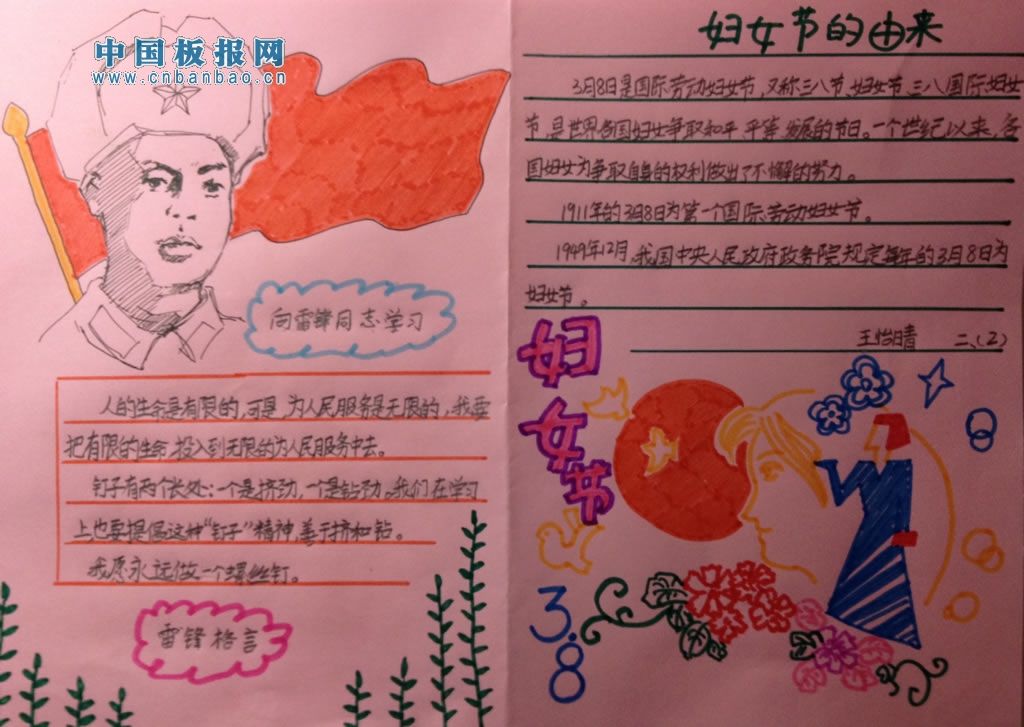 中国板报网
www.cnbanbao.cn
向雷锋同志学习
人的生命是有限的,可是,为人民服务是无限的,我要
把有限的生命,投入到无限的为人民服务中去。
钉子有两个长处:一个是挤劲,一个是钻劲。我们在学习
上也要提倡这种“钉子”精神,善于挤和钻。
我愿永远做一个螺丝钉。
雷锋格言
妇女节的由来
3月8日是国际劳动妇女节,又称三八节、妇女节、三八国际妇女
节,是世界各国妇女争取和平、平等、发展的节日。一个世纪以来,各
国妇女为争取自身的权利做出了不懈的努力。
1911年的3月8日为第一个国际劳动妇女节。
1949年12月,我国中央人民政府政务院规定每年的3月8日为
妇女节。
王怡晴 二、(2)
妇
女
节
3.8